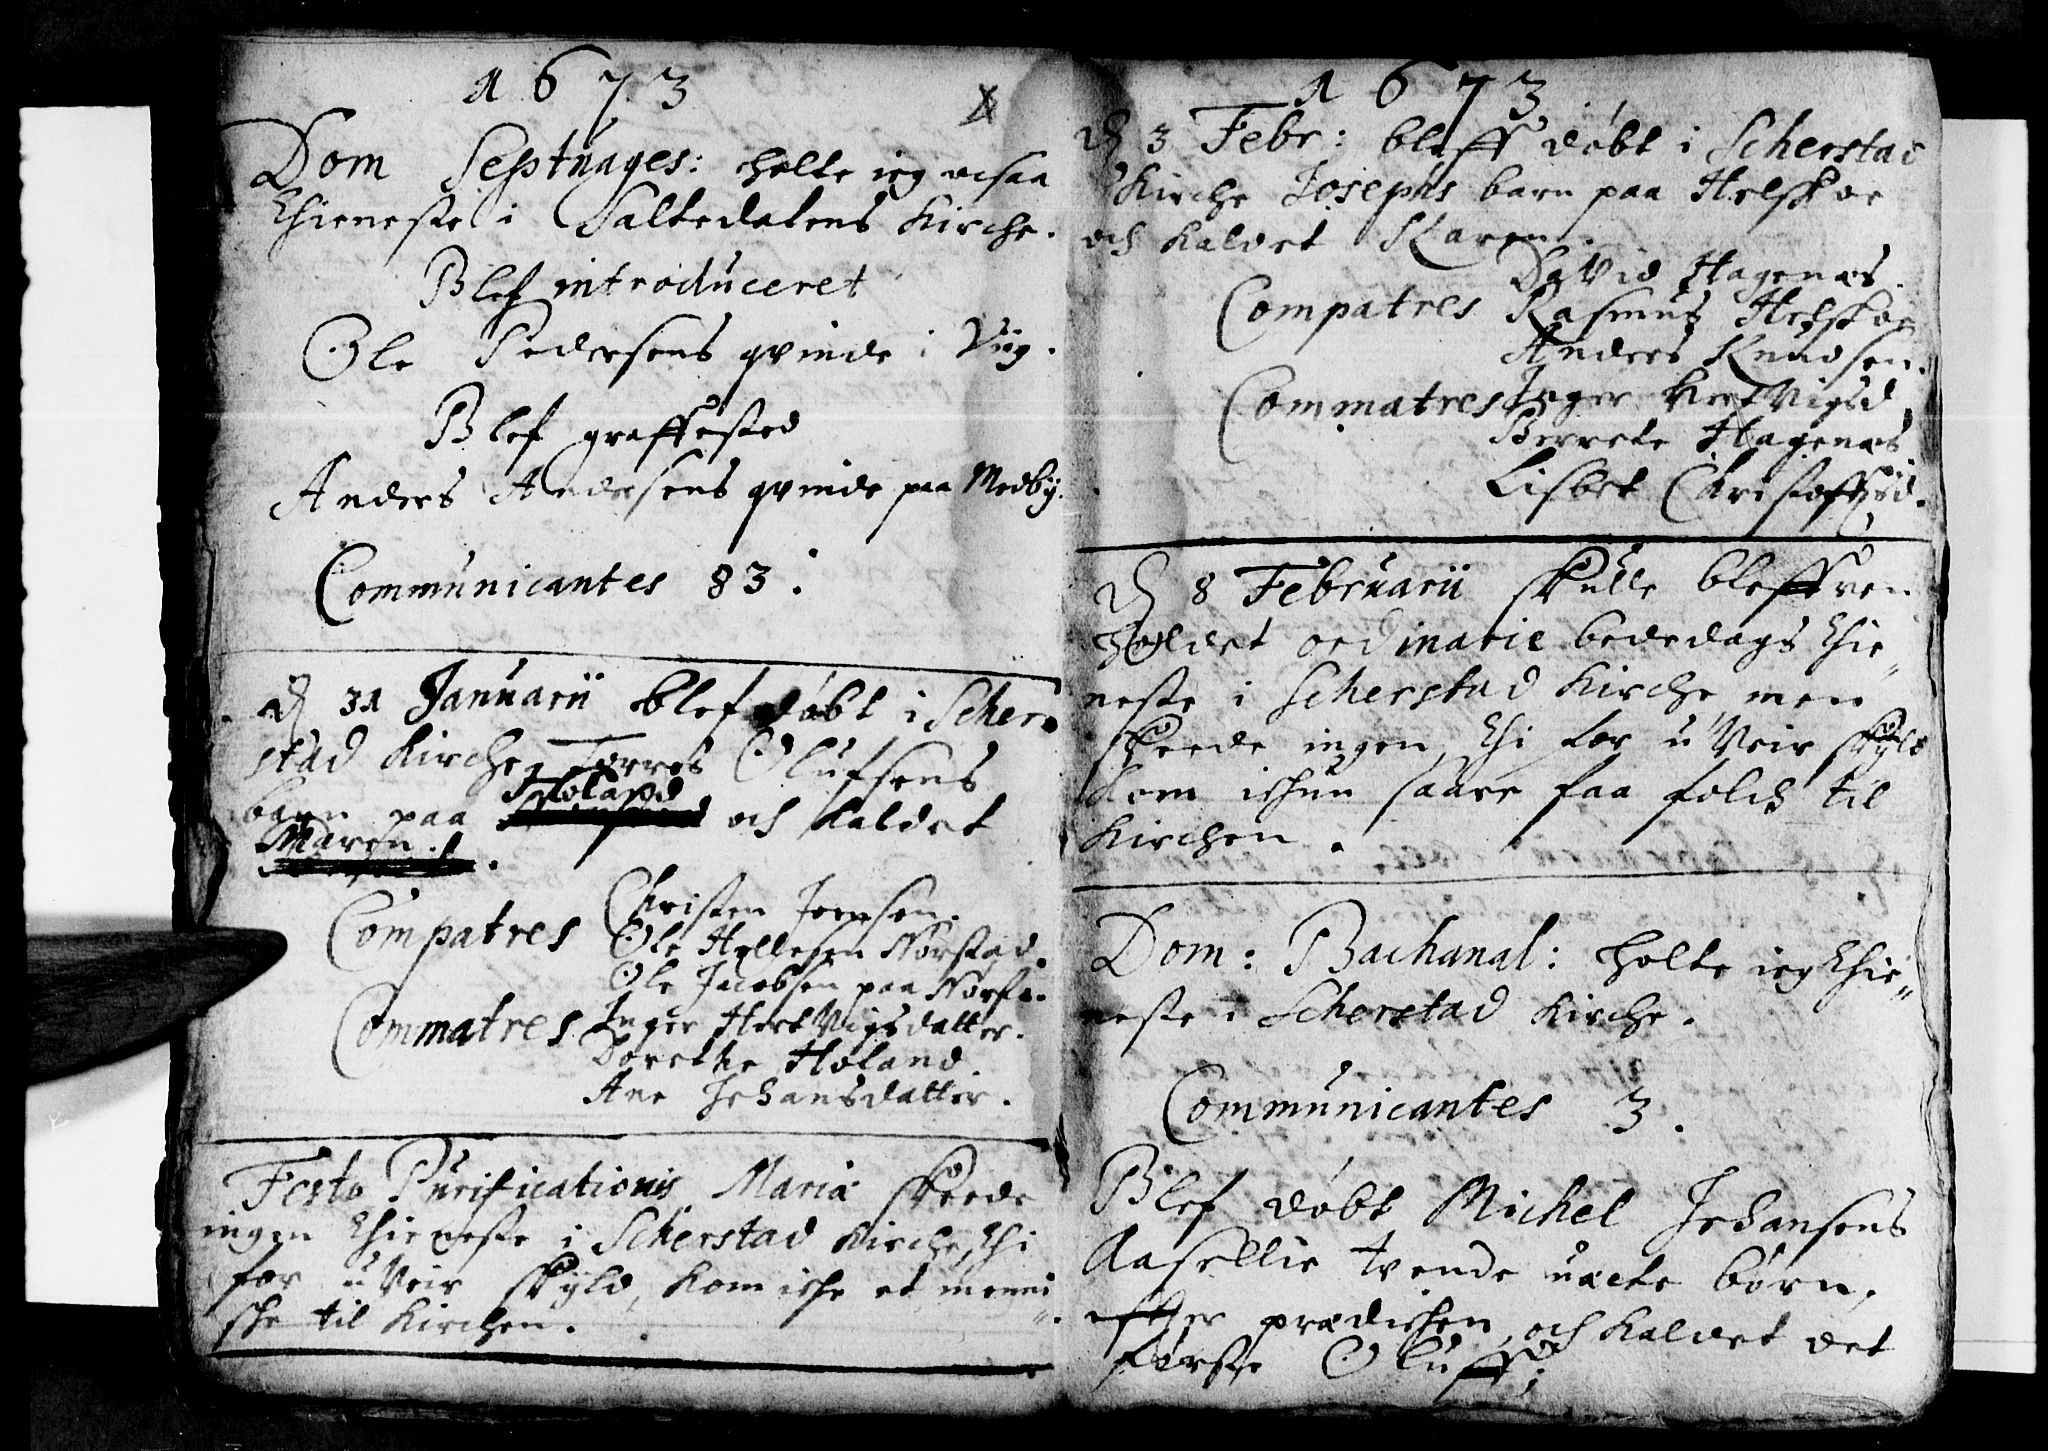 1673
Dom Septuages: holte ieg ocsaa
thieneste i Saltedalens Kirche.
Blef introduceret
Ole Pedersens qvinde i Viig.
Blef graffested
Anders Andersens qvinde paa Medby.
Communicantes 83.
D 31 Januarii blef døbt i Scher=
stad Kirche, Torres Olufsens
barn paa och kaldet
Maren.
Compatres Christen Joensen.
Ole Hellesen Norstad.
Ole Jacobsen paa
Commatres Inger HertVigsdatter.
Dorethe Høland
Ane Johansdatter.
Festo Purificationis Mariæ skeede
ingen thieneste i Scherstad Kirche, thi
for uVeir skyld, kom iche et menni
sche til Kirchen.
1673
D 3 Febr: bleff døbt i Scherstad
Kirche Josephs barn paa Helskoe
och kaldet Karen.
David Hagenæs.
Compatres Rasmus Helskoe
Anders Knudsen.
Commatres Inger HertVigsd
Berrete Hagenæs
Lisbet Christoffersd.
D 8 Februarii skulle bleffven
holdet ordinarie bededags thie=
neste i Scherstad Kirche men
skeede ingen, thi for uVeir skyld
kom ichun saare faa folch til
Kirchen.
Dom: Bachanal: holte ieg thie=
neste i Scherstad Kirche.
Communicantes 3.
Blef døbt Michel Johansens
Aasellie tvende uæcte børn,
efther prædichen, och kaldet det
første Oluff;